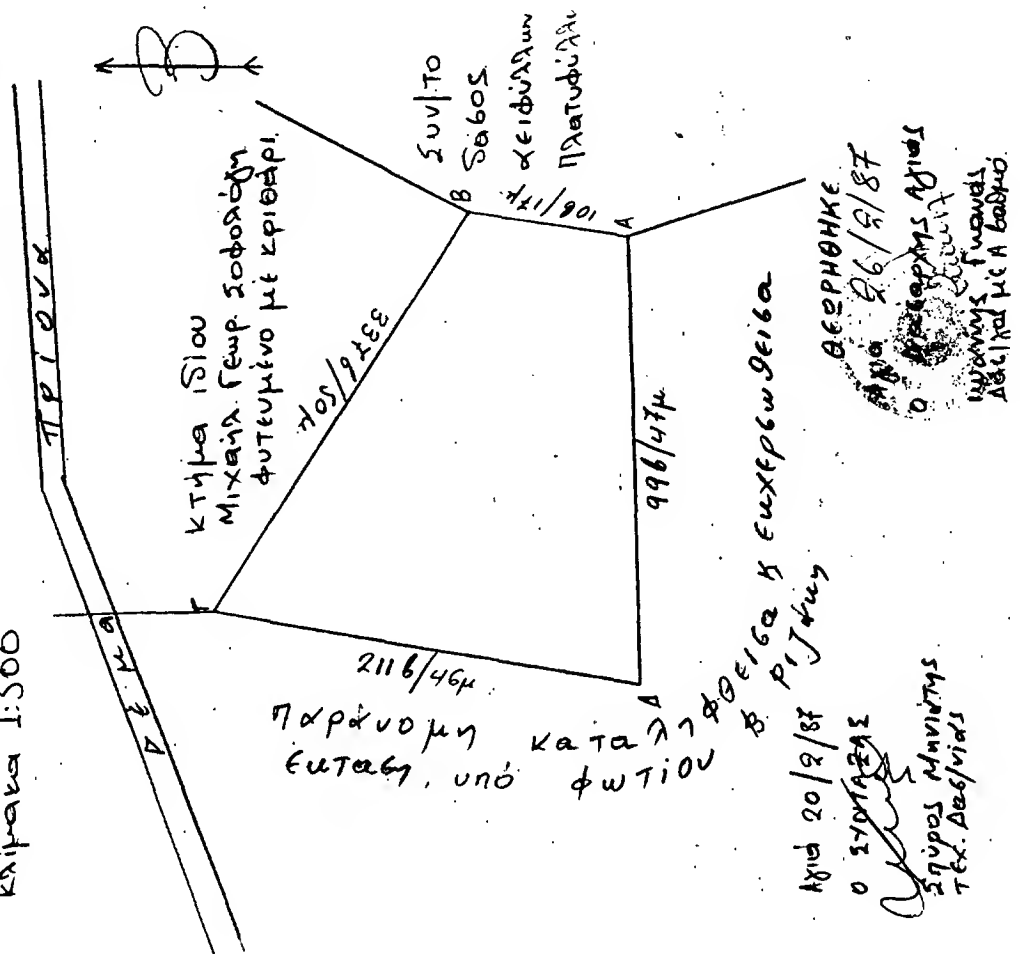 κλίμακα 1:500
Ρέμα
Πρίονα
Β
κτήμα ιδίου
Μιχαήλ Γεωρ. Σοφολόγη
φυτευμένο με κριθάρι.
Συν/το
δάσος
αειφύλλων
πλατυφύλλω
Γ
Β
Α
Δ
337β/50μ
10β/17μ
99β/47μ
211β/46μ
Παράνομη καταληφθείσα κ εκχερσωθείσα
έκταση, υπό φωτίου Β.
Αγιά 20/2/87
Ο ΣΥΝΤΑΞΑΣ
Σπύρος
Τεχ. Δασ/νίας
ΘΕΩΡΗΘΗΚΕ
Αγιά 26/2/87
Ο Δασάρχης Αγιάς
Ιωάννης
Δασ/γος με Α βαθμό